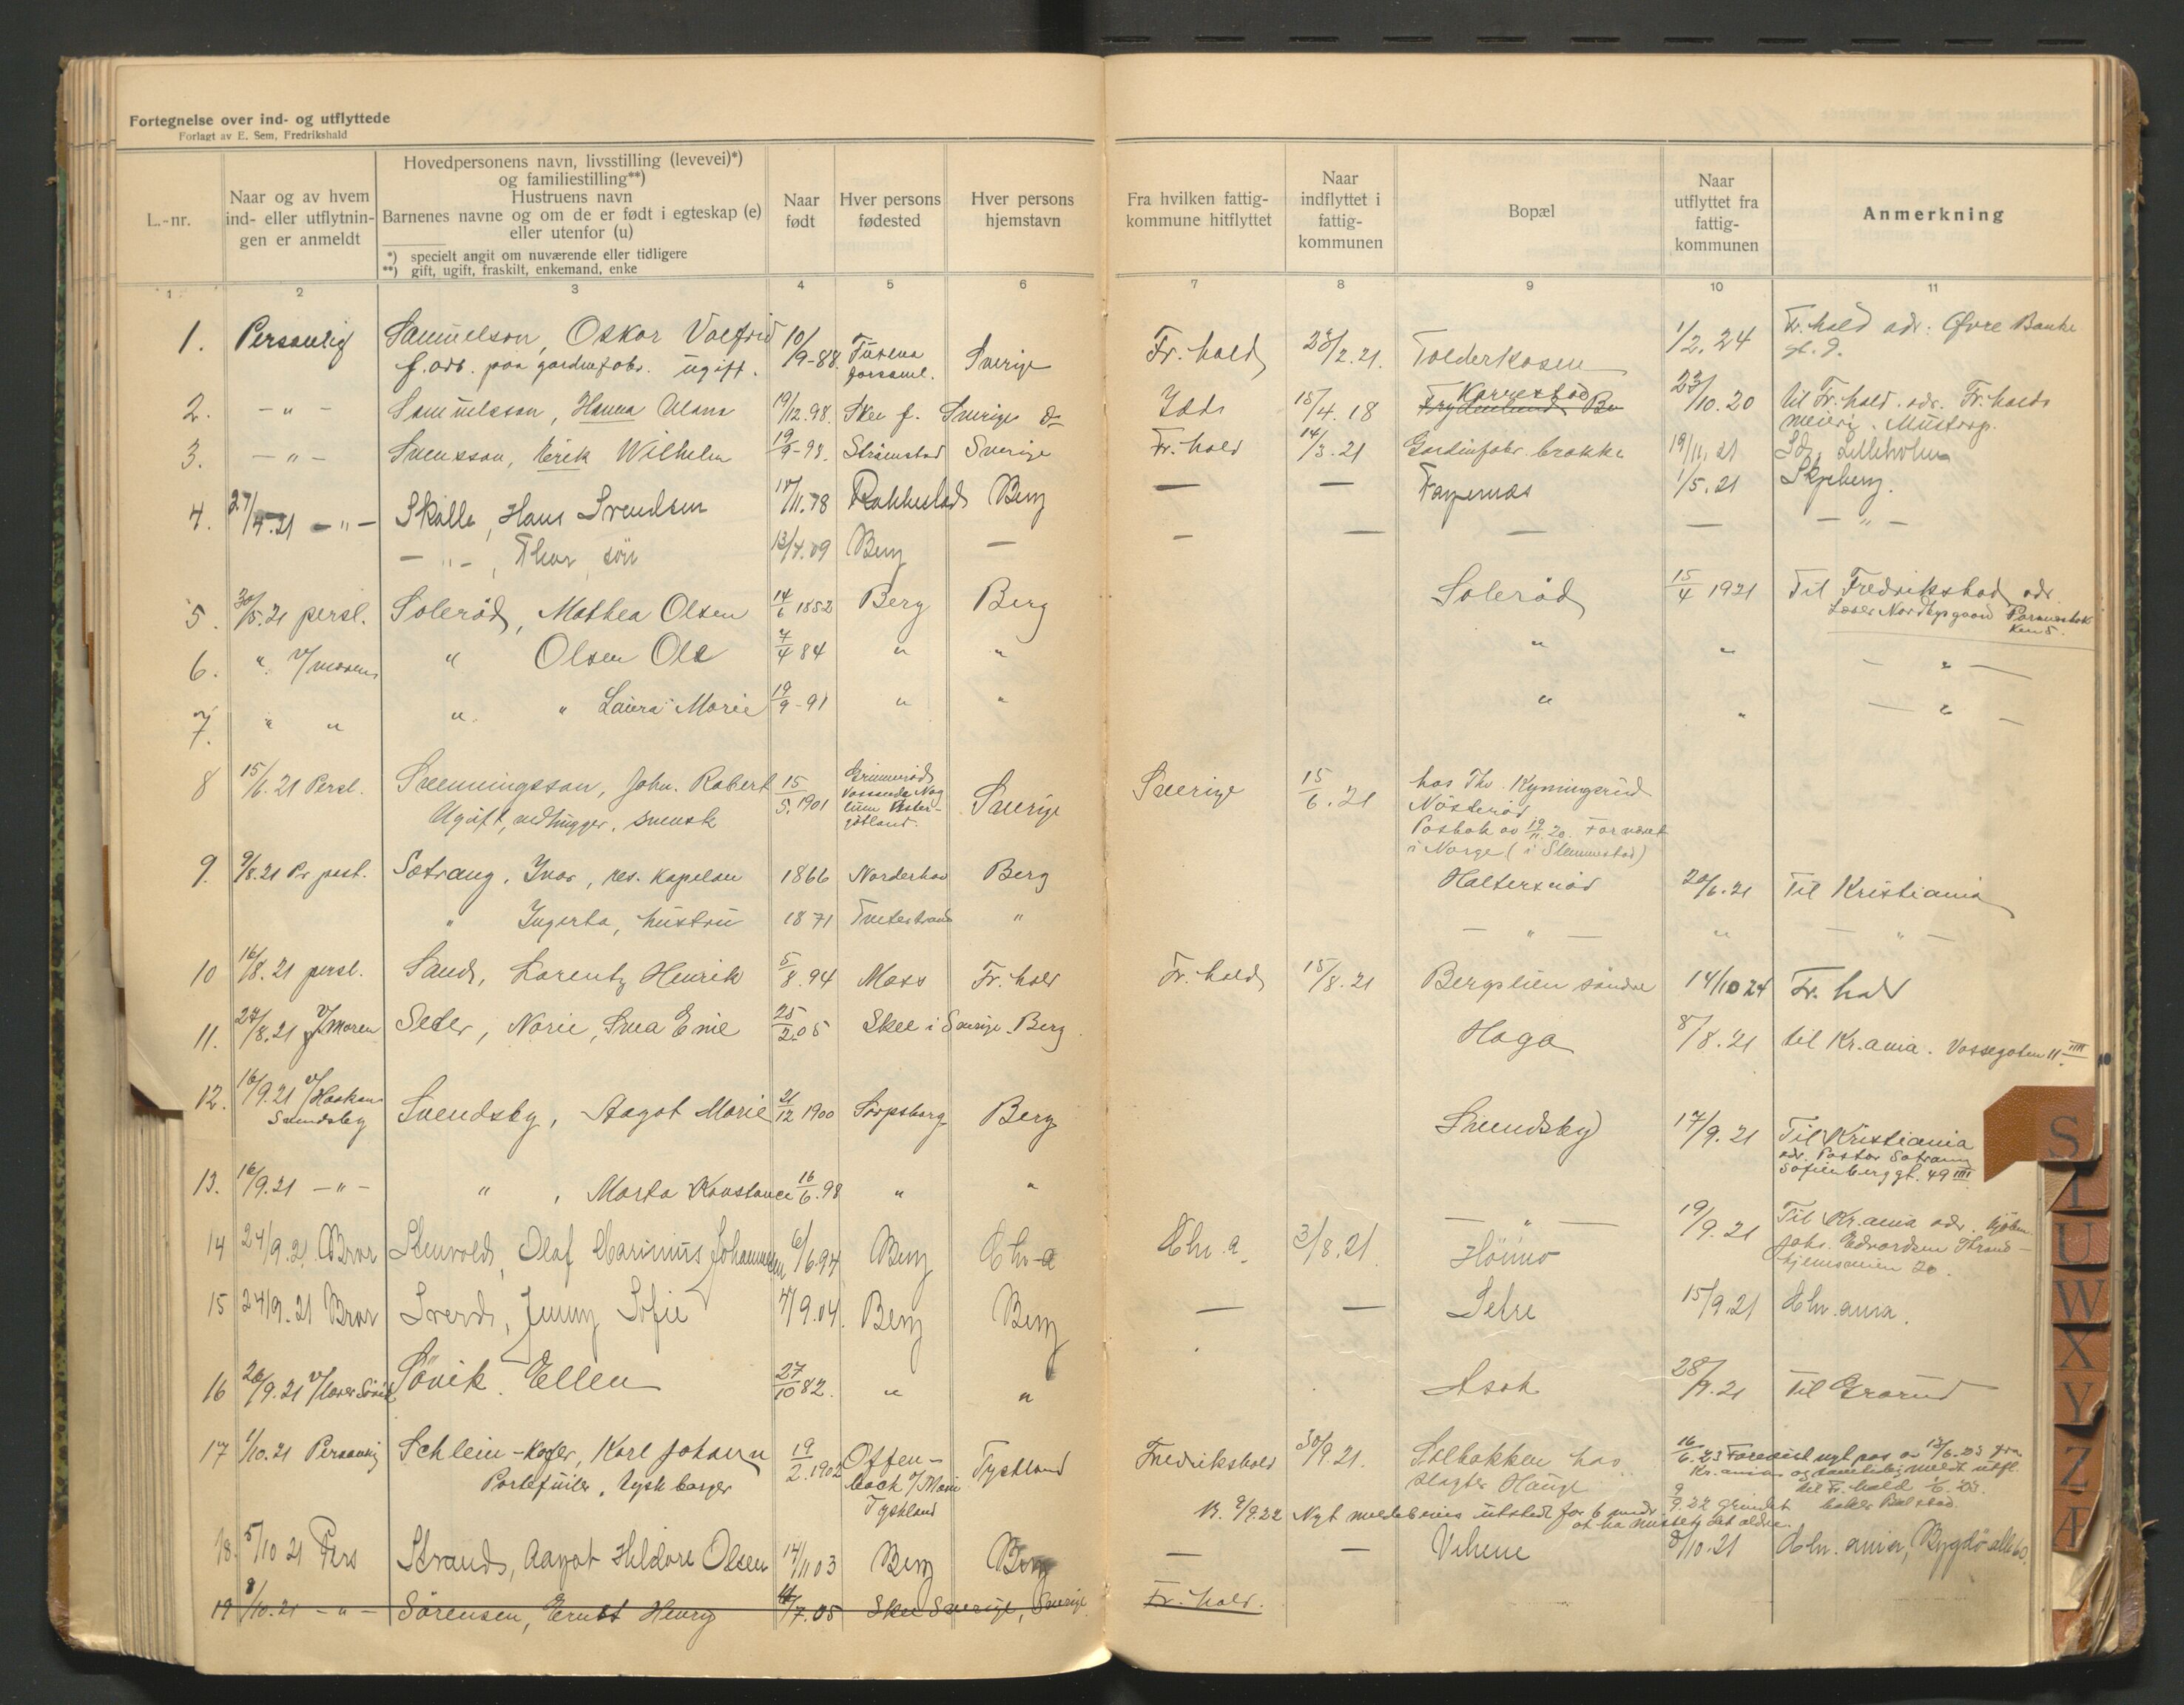 Fortegnelse over ind- og utflyttede
Forlagt av E. Sem, Fredrikshald
L.-nr.
Naar og av hvem
ind- eller utflytnin-
gen er anmeldt
Hovedpersonens navn, livsstilling (levevei)*)
og familiestilling**)
Hustruens navn
Barnenes navne og om de er født i egteskap (e)
eller utenfor (u)
*) specielt angit om nuværende eller tidligere
**) gift, ugift, fraskilt, enkemand, enke
Naar
født
Hver persons
fødested
Hver persons
hjemstavn
Fra hvilken fattig-
kommune hitflyttet
Naar
indflyttet i
fattig-
kommunen
Bopæl
Naar
utflyttet fra
fattig-
kommunen
Anmerkning
1 2 3 4 5 6 7 8 9 10 11
1. Personlig Samuelson, Oskar Valfrid 10/9-88. Sverige Fr.hald 28/2.21. Tolderkasen 1/2.24 Fr.hald adr: Øvre Banke
f.arb. paa gardinfabr. ugift. gt. 9.
2. -"- Samuelsson, Hanna 19/12.98. Skee Sverige Idd 15/4.18 23/10.20 til Fr.hald. adr. Fr.halds
meieri.
3. -"- Svensson, Erik Wilhelm 19/9-93. Strömstad Sverige Fr.hald 14/3.21 Gardinfabr. brakke 19/11.21 Lilleholm
4. 27/4.21 -"- Skolle, Hans Svendsen 18/11.78 Rakkestad Berg — — 1/5.21 Skjeberg.
-"-, Thor, sön 13/4.09 Berg — — — — — -"-
5. 30/5.21 persl. Solerød, Mathea Olsen 14/6 1852 Berg Berg Solerød 15/4 1921 Til Fredrikstad adr.
6. " v/moren " Olsen Ole 7/4 84 " " " " — " —
7. " " " " Laura Marie 19/9-91 " " " " — " —
8 15/6.21 Persl. Svenningsson, John. Robert 15/5.1901 Sverige Sverige 15/6.21 hos Thv. Kynningsrud
Ugift, vedhugger, svensk götland. Nösterød
Pasbok av 19/11.20. Før været
i Norge (i Slemmestad)
9. 9/8.21 Pr post. Sotrang, Ivar, res. kapelan 1866 Norderhov Berg 20/6.21 Til Kristiania
" Ingerta, hustru 1871 Tvetestrand " — " — " — " —
10 16/8.21 persl. Sand, Lorentz Henrik 5/8.94 Moss Fr.hald Fr.hald 15/8.21 Bergslien söndre 14/10 24 Fr.hald
11. 27/8.21 v/Moren Seder, Norie, Svea Enie 25/2.05 Skee i Sverige Berg Haga 8/8.21 til Kr.ania. Vossegaten 11 IIII
12. 16/9.21 v/Haakon Svendsby, Aagot Marie 21/12 1900 Sarpsborg Berg Svendsby 17/9.21 Til Kristiania
Svendsby adr. Pastor Sotrang
Sofienberggt. 49 III
13. 16/9.21 -"- " , Marta Konstance 16/6.98 " " — " — 19/9.21 Til Kr.ania adr. Kjøbm.
14 24/9.21. Bror Olaf Marinius Johannesen 6/6.94 Berg Chr-a Chr.a. 3/8.21. Joh. Edvardsen Thrond-
hjemsveien 20.
15 24/9.21 Bror Sverd, Jenny Sofie 4/9.04. Berg Berg — — Setre 15/9.21 Chr.ania.
16 26/9.21 v/Lærer Sövik Sövik. Ellen 27/10 82. " " Asak 28/9.21 Til Grorud
17 1/10.21 Personlig Schlein-Kofler, Karl Johann 19/2.1902 Offen- Tyskland Fredrikshald 30/9.21. Solbakken hos
Portefuiler, tysk borger bach a/Main
Tyskland
slagter Hauge
9/9.22 Nyt meldebevis utstedt for 6 mndr. 9/9.22 grundet
at ha mistet det ældre.
18. 5/10 21 Pers Strand, Aagot Heldore Olsen 14/11 03 Berg Berg — — 8/10.21 Chr.ania, Bygdö alle 60.
19 8/10.21 -"- Sörensen, Ernst Henry 14/7.05 Skee Sverige, Sverige Fr.hald.
S
T
U
W
X
Y
Z
Æ